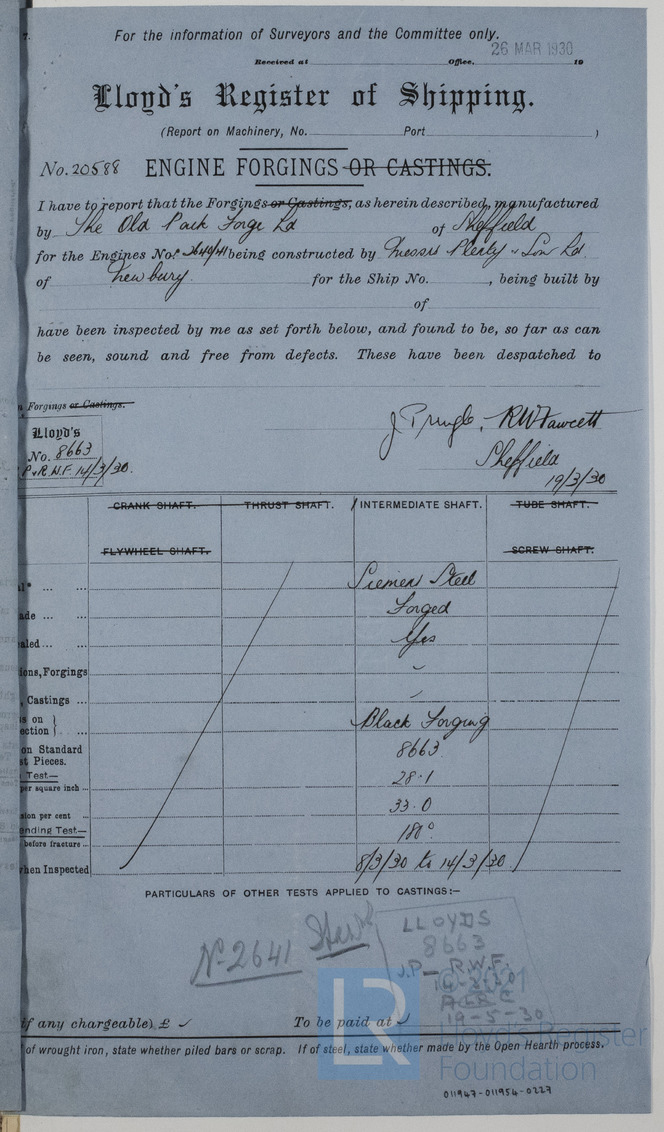 For the information of Surveyors and the Committee only.
26 MAR 1930
Received at Office, 19
Lloyd's Register of Shipping.
(Report on Machinery, No. Port )
No. 20588 ENGINE FORGINGS OR CASTINGS.
I have to report that the Forgings or Castings, as herein described, manufactured
by The Old Park Forge Ld of Sheffield
for the Engines No. 2640/41 being constructed by Messrs Plenty & Son Ld
of Newbury for the Ship No. , being built by
of
have been inspected by me as set forth below, and found to be, so far as can
be seen, sound and free from defects. These have been despatched to
Forgings or Castings.
Lloyd's
No. 8663
P & R.W.F. 14/3/30.
J Pringle, RW Fawcett
Sheffield
19/3/30
CRANK SHAFT. THRUST SHAFT. INTERMEDIATE SHAFT. TUBE SHAFT.
FLYWHEEL SHAFT. SCREW SHAFT.
Siemens Steel
Forged
Yes
Forgings
Castings
Black Forging
on Standard 8663
Pieces.
Test—
per square inch 28.1
per cent 33.0
Test—
before fracture 180°
when Inspected 8/3/30 to 14/3/30
PARTICULARS OF OTHER TESTS APPLIED TO CASTINGS:—
No 2641
LLOYDS
8663
J.P— R.W.F.
14-3-30
19-5-30
if any chargeable) £ To be paid at
of wrought iron, state whether piled bars or scrap. If of steel, state whether made by the Open Hearth process.
LR
© 2021
Lloyd's Register
Foundation
011947-011954-0227